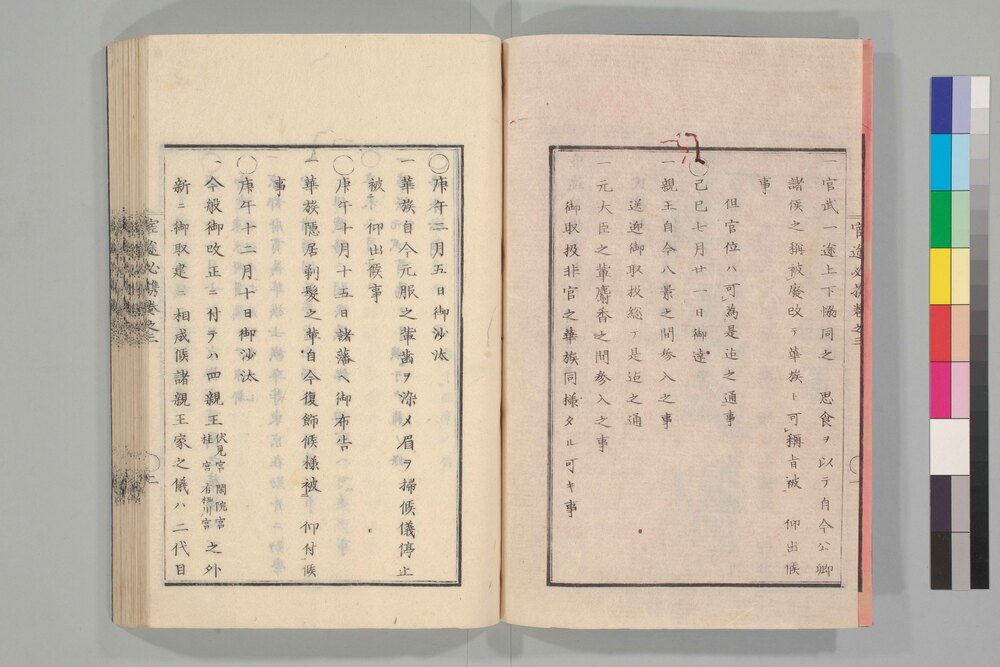 一官武一途上下協同之　思食ヲ以テ自今公卿
諸侯之称被廃改テ華族ト可称旨被　仰出候
事
但官位ハ可為是迄之通事
〇己巳七月廿一日御達
一親王自今八景之間参入之事
送迎御取扱総テ是迄之通
一元大臣之輩麝香之間参入之事
御取扱非官之華族同様タル可キ事
〇庚午二月五日御沙汰
一華族自今元服之輩歯ヲ染メ眉ヲ掃候儀停止
被　仰出候事
〇庚午十月十五日諸藩ヘ御布告
一華族隠居剃髪之輩自今復飾候様被　仰付候
事
〇庚午十二月十日御沙汰
一今般御改正ニ付テハ四親王伏見宮 閑院宮 桂宮 有栖川宮之外
新ニ御取建ニ相成候諸親王家之儀ハ二代目